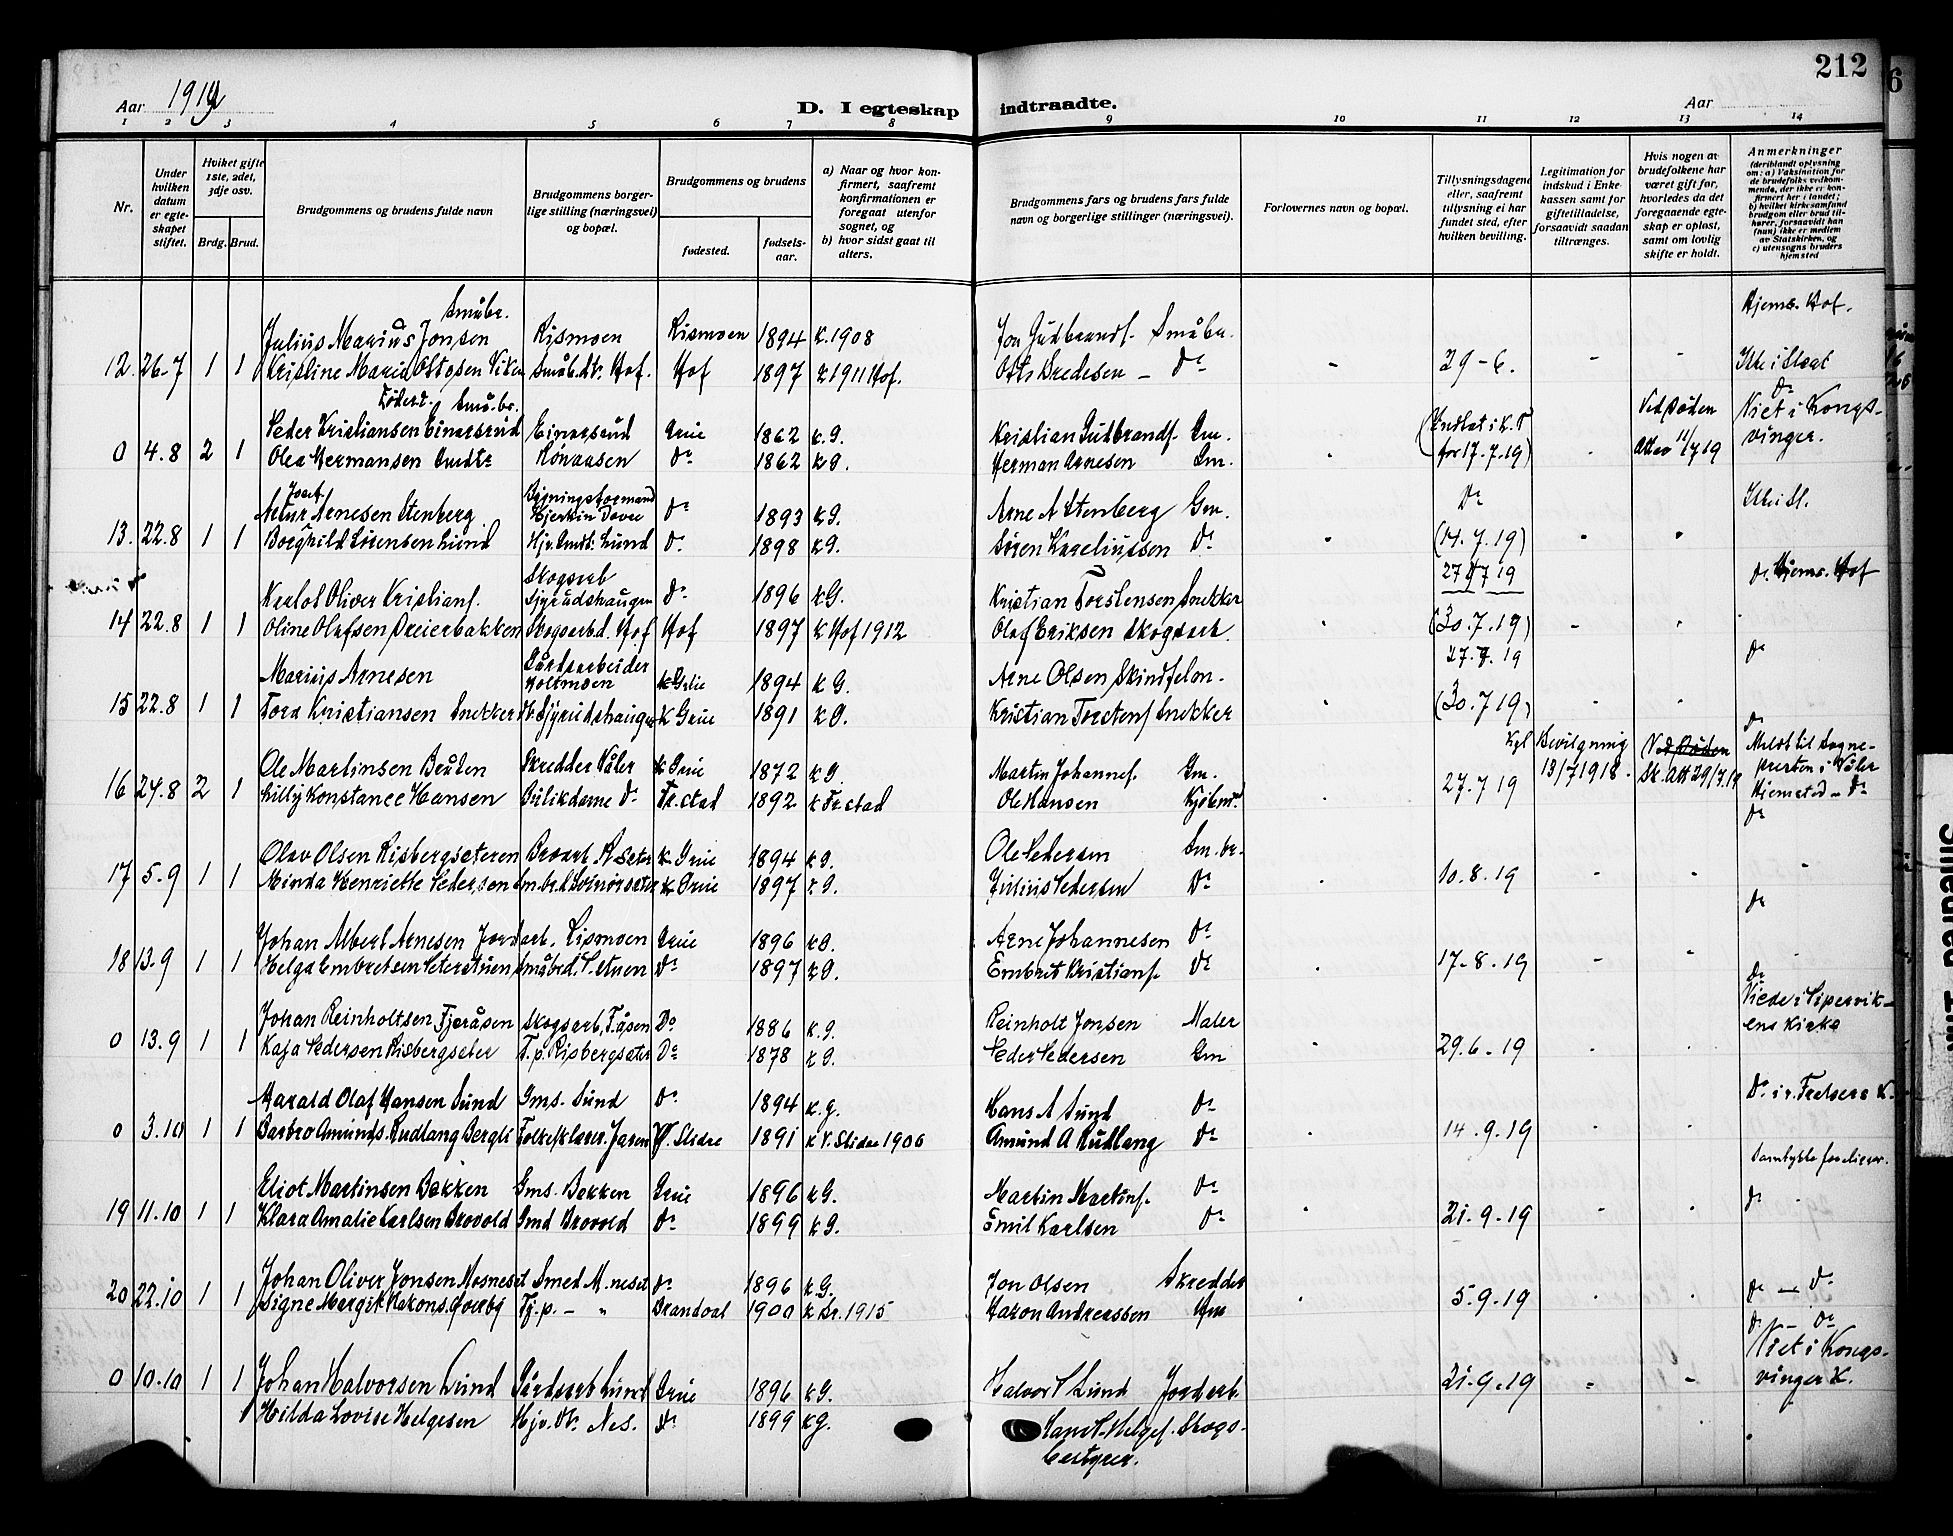 212
6
Aar 1919
D. I egteskap indtraadte.
Aar
1 2 3 4 5 6 7 8 9 10 11 12 13 14
Nr.
Under hvilken datum er egteskapet stiftet.
Hviket gifte 1ste, 2det, 3dje osv.
Brdg. Brud.
Brudgommens og brudens fulde navn
Brudgommens borgerlige stilling (næringsvei) og bopæl.
Brudgommens og brudens
fødested.
fødselsaar.
a) Naar og hvor konfirmert, saafremt konfirmationen er foregaat utenfor sognet, og
b) hvor sidst gaat til alters.
Brudgommens fars og brudens fars fulde navn og borgerlige stillinger (næringsvei).
Forlovernes navn og bopæl.
Tillysningsdagene eller, saafremt tillysning ei har fundet sted, efter hvilken bevilling.
Legitimation for indskud i Enkekassen samt for giftetilladelse, forsaavidt saadan tiltrænges.
Hvis nogen av brudefolkene har været gift før, hvorledes da det foregaaende egteskap er opløst, samt om lovlig skifte er holdt.
Anmerkninger
(deriblandt oplysning om: a) Vaksination for de brudefolks vedkommende, der ikke er konfirmert her i landet; b) hvilket kirkesamfund brudgom eller brud tilhører, forsaavidt han (hun) ikke er medlem av Statskirken, og c) utensogns bruders hjemsted
Småbr. Hjems. Hof.
Julius Marius Jonsen Rismoen Rismoen 1894 K. 1908 Jon Gudbrandf. Småbr.
12. 26-7 1 1 Kristine Marie Ottosen Viken Småb. Dt. Hof. Hof 1897 K 1911 Hof. Otto Bredesen - Do - 29-6. - - Ikke i Slegt
Små.br. Do
Peder Kristiansen Einersrud Einersrud Grue 1862 K.G. Kristian Gudbrandf. Gm. Ved Døden Viet i Kongs-
0 4.8 2 1 Olea Hermansen 1862 K.G. Herman Arnesen Sm. for 17.7.19) Att av 11/7 19 vinger.
Artur Arnesen Stenberg Hjerkin Dovre Do 1893 K.G. Arne A Stenberg Gm. Do Ikke i Sl.
13. 22.8 1 1 Borghild Sørensen Lund Lund Do 1898 K.G. Søren Kareliussen Do (14.7.19)
Skogsarb 27/7 19 Do. Hjems. Hof
Karlot Oliver Kristianf. Sjyrudshaugen Do 1896 K.G. Kristian Torstensen Snekker
14 22.8 1 1 Oline Olafsen Dreierbakken Skogsarb.d. Hof Hof 1897 K Hof 1912 Olaf Eriksen Skogsarb. (30.7.19) -
Gårdsarbeider 27.7.19 Do
Marius Arnesen Holtmoen Grue 1894 K G. Arne Olsen Skindfelen.
15 22.8 1 1 Tora Kristiansen Snekkerd. Sjyrudshaugen Grue 1891 K G. Kristian Torstenf Snekker (30.7.19)
Kgl Bevilgning Ved Døden Do Meldt til Sogne-
Ole Martinsen Bråten Skredder Våler Grue 1872 K.G. Martin Johannef. Gm. 13/7 1918. Sk. Att 29/7.19 presten i Våler
16 24.8 2 1 Lilly Konstance Hansen Do Fr.stad 1892 K Fr.stad Ole Hansen 27.7 19 Hjemsted - Do
Do
Olav Olsen Risbergseteren Grue 1894 K G. Ole Pedersen Sm.br.
17 5.9 1 1 Minda Henriette Pedersen Grue 1897 K.G. Julius Pedersen Do 10.8.19
Do
Johan Albert Arnesen Jordarb. Rismoen Grue 1896 K.G. Arne Johannesen Do
18 13.9 1 1 Helga Embretsen Seterstuen Småbrd. S.stuen Do 1897 K.G. Embret Kristianf. Do 17-8.19
Do
Johan Reinholtsen Fjeråsen Skogsarb. F.åsen Do 1886 K.G. Reinholt Jonsen Maler Viede i Pipervik-
0 13.9 1 1 Kaja Pedersen Risbergseter Risbergseter Do 1878 K G. Peder Pedersen Gm 29.6.19 ens Kirke
Harald Olaf Hansen Sund Gms. Sund Do 1894 K.g. Hans A Sund Do Do i v. Frelsers K.
0 3.10 1 1 Barbro Amunds. Rudlang Bergli Jaren V. Slidre 1891 K V. Slidre 1906 Amund A Rudlang Do 14.9.19
Eliot Martinsen Bekken Gms. Bekken Grue 1896 K G. Martin Martinf. Do
19 11.10 1 1 Klara Amalie Karlsen Brovold Gmd Brovold Do 1899 K G. Emil Karlsen Do 21.9.19 Do
Johan Oliver Jonsen Mosneset Smed M.neset Do 1896 K G. Jon Olsen Skredder
20 22.10 1 1 Signe Margit Hakons. Overby Tj.p. - " Brandval 1900 K Br. 1915 Hakon Andreassen Gm 5.9.19 Do - Do
Do - Do
Johan Halvorsen Lund Gårdsarb Lund Grue 1896 K G. Halvor Lund Jordarb. Viet i Kongs-
0 10.10 1 1 21-9.19 - - vinger K.
1 Hilda Lovise Helgesen Hjv. Dt. Nes. Do 1899 K G. Helgef. Skogs-
bestyrer.